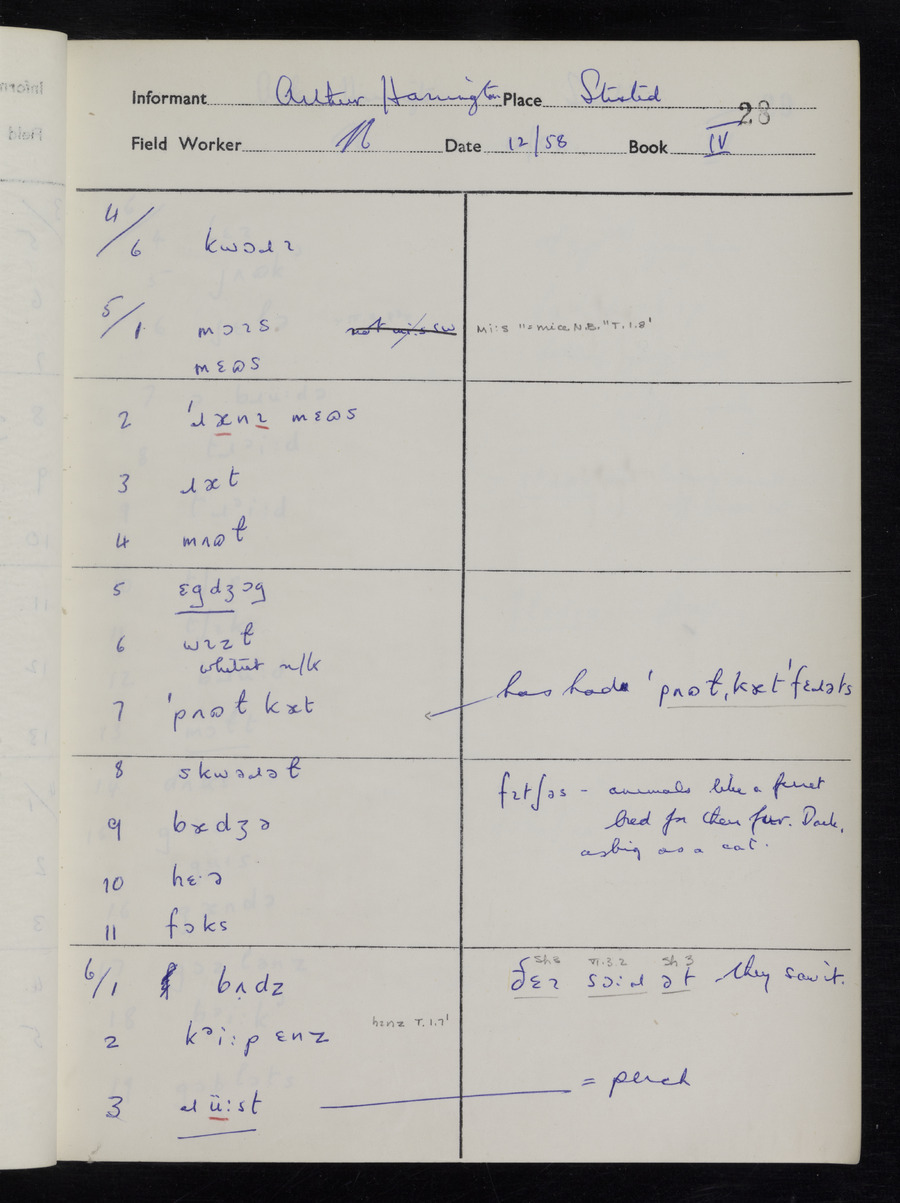 Informant Arthur Harrington Place Stisted
28
Field Worker Date 12/58 Book IV
4/6 kwɔɹɪ
5/1 mɔɪs mi:s "= mice N.B." T.1.8'
mɛɷs
2 'ɹænɪ mɛɷs
3 ɹæt
4 mʌɷt
5 ɛgdʒɔg
6 wɪzɪt
whitret n/k
7 'pʌɷt kæt has had 'pʌɷt,kæt 'fɛɹəts
8 skwəɹət
fɪtʃəs - animals like a ferret
bred for their fur. Dark,
as big as a cat.
9 bædʒə
10 hɛ·ə
11 fɔks
6/1 bʌdz
ðɛɪ sɔ:ɹ ət they saw it.
Sh 3 VI.3.2 Sh 3
2 kᵊi:p ɛnz
hɛnz T.1.7'
3 ɹüːst = perch